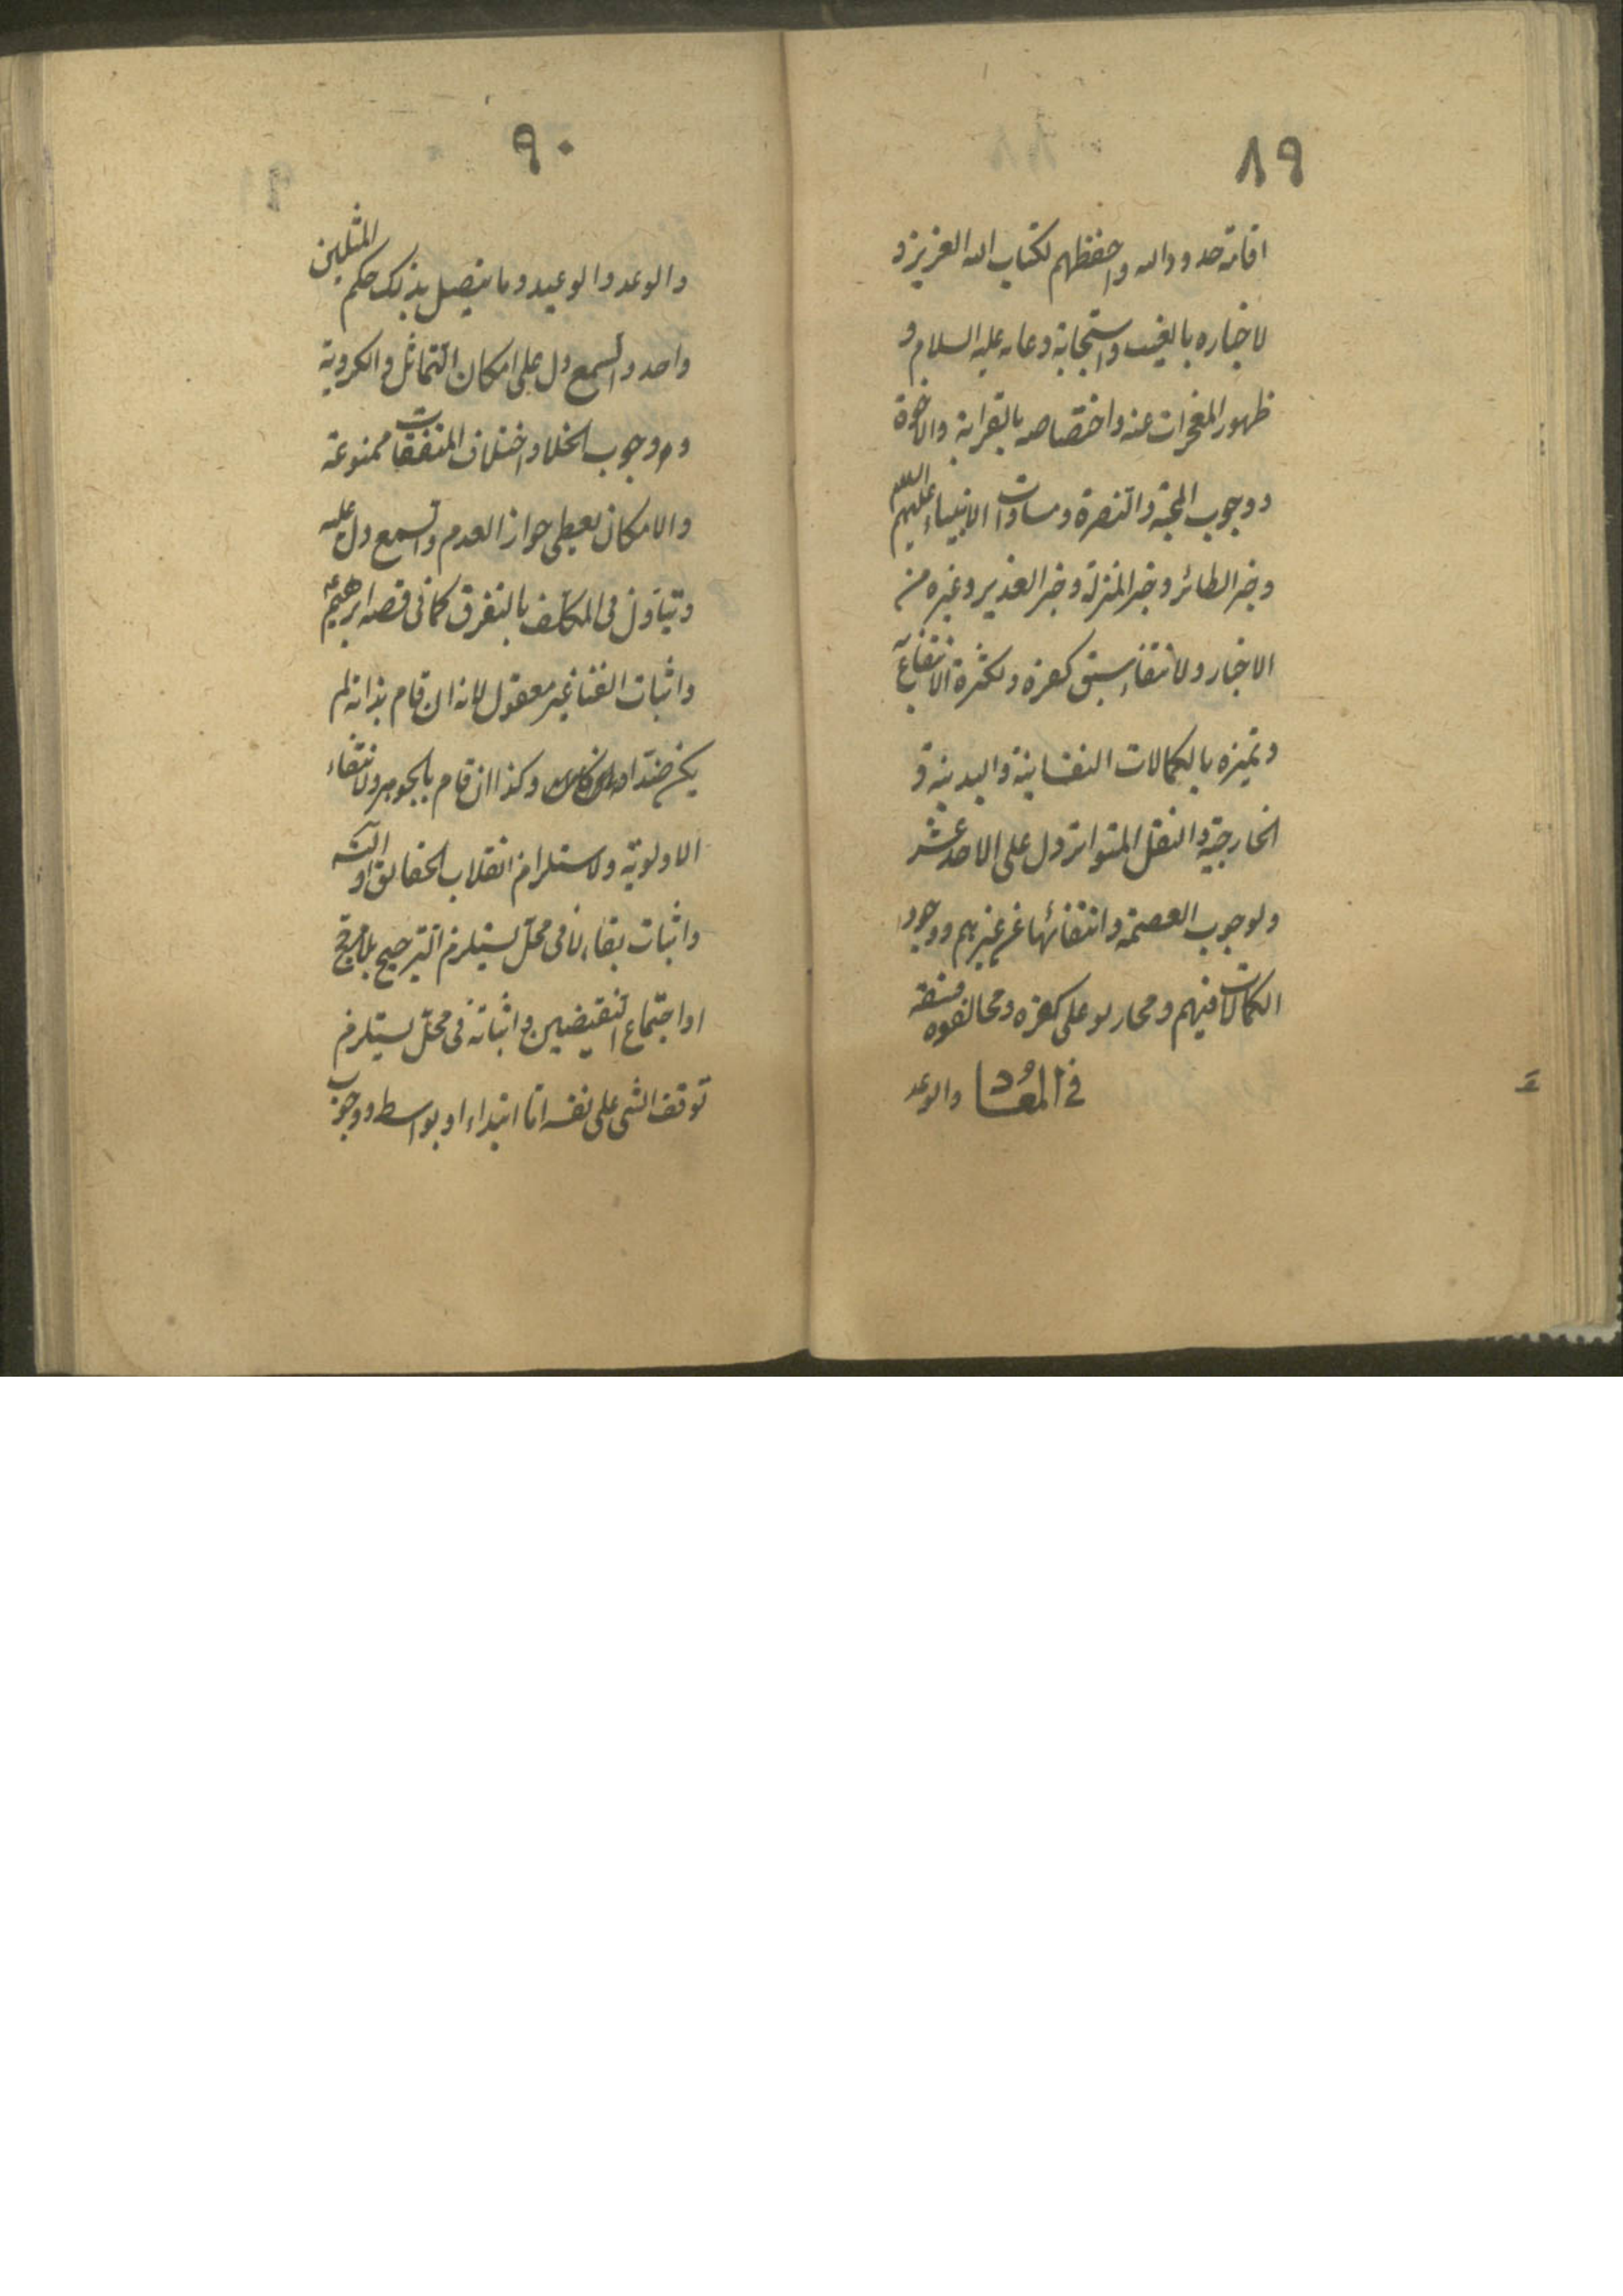 ٨٩
اقامة حدود الله واحفظهم لكتاب الله العزيز و
لاخباره بالغيب واستجابة دعائه عليه السلام و
ظهور المعجزات عنه واختصاصه بالقرابة والاخوة
ووجوب المحبة والنصرة ومساوات الانبياء عليهم السلام
وخبر الطائر وخبر المنزلة وخبر الغدير وغيره من
الاخبار ولانتفاء سبق كفره ولكثرة الانتفاع به
وتميزه بالكمالات النفسانية والبدنية و
الخارجية والنقل المتواتر دل على الاحد عشر
ولوجوب العصمة وانتفائها عن غيرهم ووجود
الكمالات فيهم ومحاربوا على كفره ومخالفوه فسقة
في المعاد والوعد
٩٠
والوعد والوعيد وما يتصل بذلك حكم المثلين
واحد والسمع دل على امكان التماثل والكروية
ووجوب الخلا واختلاف المتفقات ممنوعة
والامكان يعطى جواز العدم والسمع دل عليه
ويتاول فى المكلف بالتفرق كما فى قصه ابرهيم ع
واثبات الفنا غير معقول لانه ان قام بذاته لم
يكن ضدا وكذا ان قام بالجوهر ولانتفاء
الاولوية ولاستلزام انقلاب الحقائق او التسـ
واثبات بقاء لا فى محل يستلزم الترجيح بلا مرجح
او اجتماع النقيضين واثباته فى محل يستلزم
توقف الشى على نفسه اما ابتداء او بواسطه ووجوب